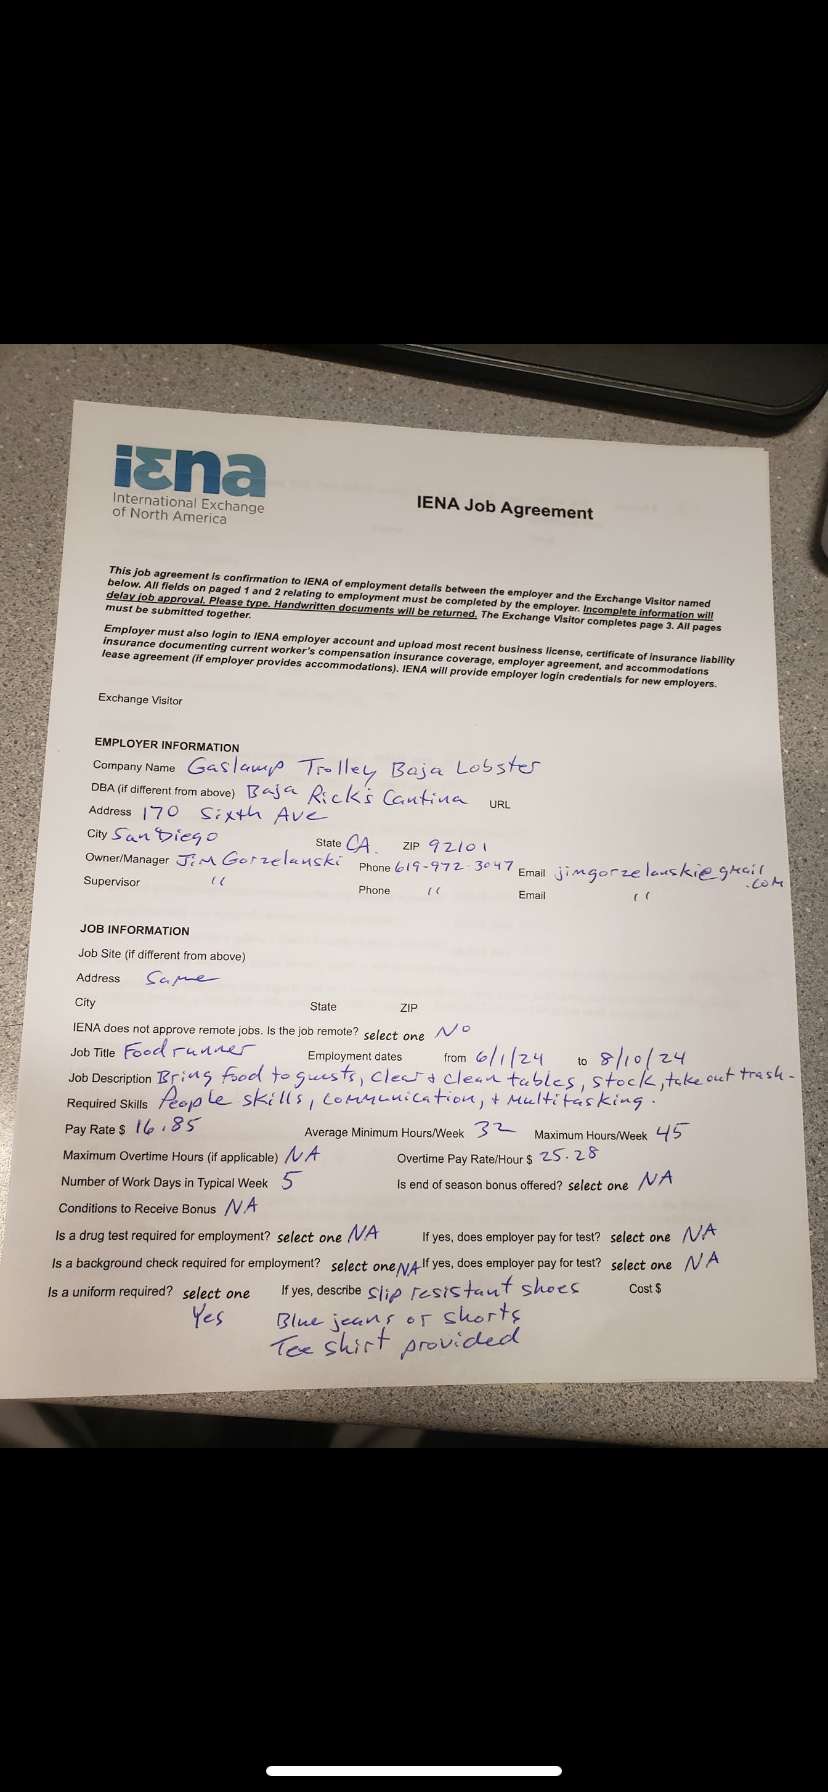 iɛna
International Exchange
of North America
IENA Job Agreement
This job agreement is confirmation to IENA of employment details between the employer and the Exchange Visitor named
below. All fields on paged 1 and 2 relating to employment must be completed by the employer. Incomplete information will
delay job approval. Please type. Handwritten documents will be returned. The Exchange Visitor completes page 3. All pages
must be submitted together.
Employer must also login to IENA employer account and upload most recent business license, certificate of insurance liability
insurance documenting current worker's compensation insurance coverage, employer agreement, and accommodations
lease agreement (if employer provides accommodations). IENA will provide employer login credentials for new employers.
Exchange Visitor
EMPLOYER INFORMATION
Company Name Gaslamp Trolley Baja Lobster
DBA (if different from above) Baja Rick's Cantina URL
Address 170 Sixth Ave
City San Diego State CA. ZIP 92101
Owner/Manager Jim Gorzelanski Phone 619-972-3047 Email jimgorzelanski@gmail.com
Supervisor " Phone " Email "
JOB INFORMATION
Job Site (if different from above)
Address Same
City State ZIP
IENA does not approve remote jobs. Is the job remote? select one No
Job Title Food runner Employment dates from 6/1/24 to 8/10/24
Job Description Bring food to guests, clear & clean tables, stock, take out trash-
Required Skills People skills, communication, + multitasking.
Pay Rate $ 16.85 Average Minimum Hours/Week 32 Maximum Hours/Week 45
Maximum Overtime Hours (if applicable) NA Overtime Pay Rate/Hour $ 25.28
Number of Work Days in Typical Week 5 Is end of season bonus offered? select one NA
Conditions to Receive Bonus NA
Is a drug test required for employment? select one NA If yes, does employer pay for test? select one NA
Is a background check required for employment? select one NA If yes, does employer pay for test? select one NA
Is a uniform required? select one If yes, describe slip resistant shoes Cost $
Yes Blue jeans or shorts
Tee shirt provided